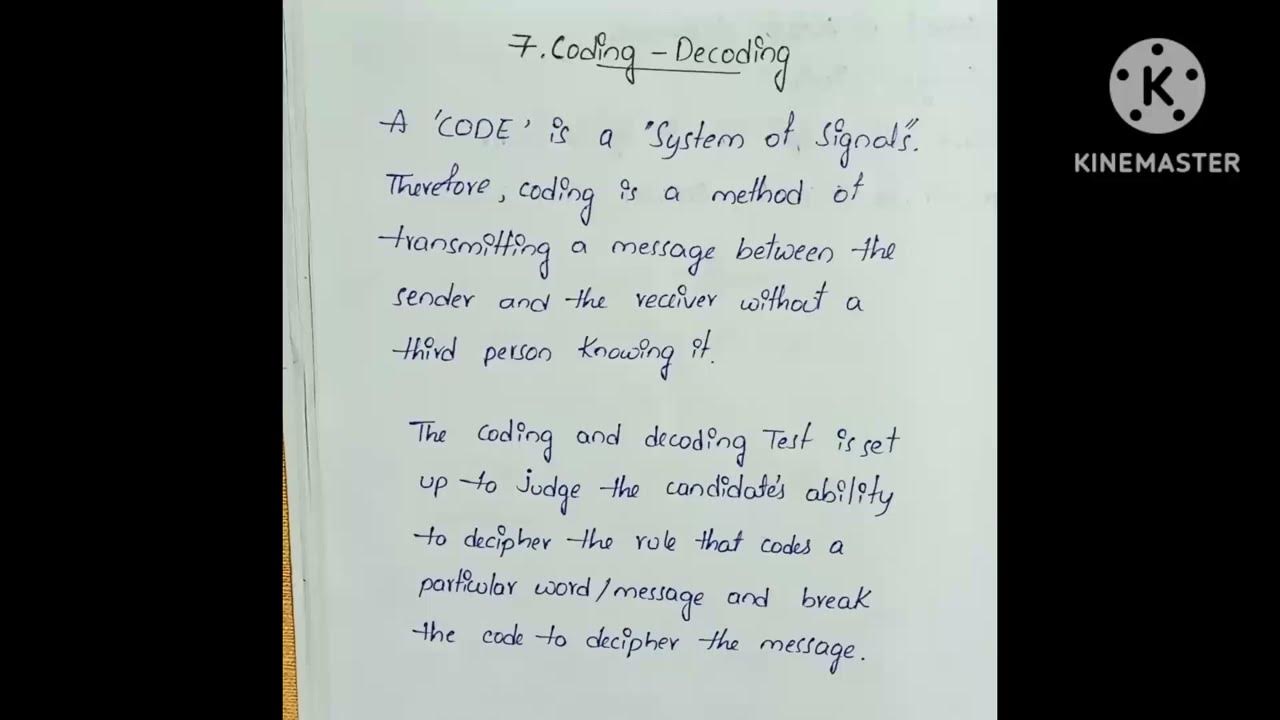 7. Coding - Decoding
A 'CODE' is a "System of Signals".
Therefore, coding is a method of
transmitting a message between the
sender and the receiver without a
third person knowing it.
The coding and decoding Test is set
up to judge the candidate's ability
to decipher the rule that codes a
particular word/message and break
the code to decipher the message.
K
KINEMASTER